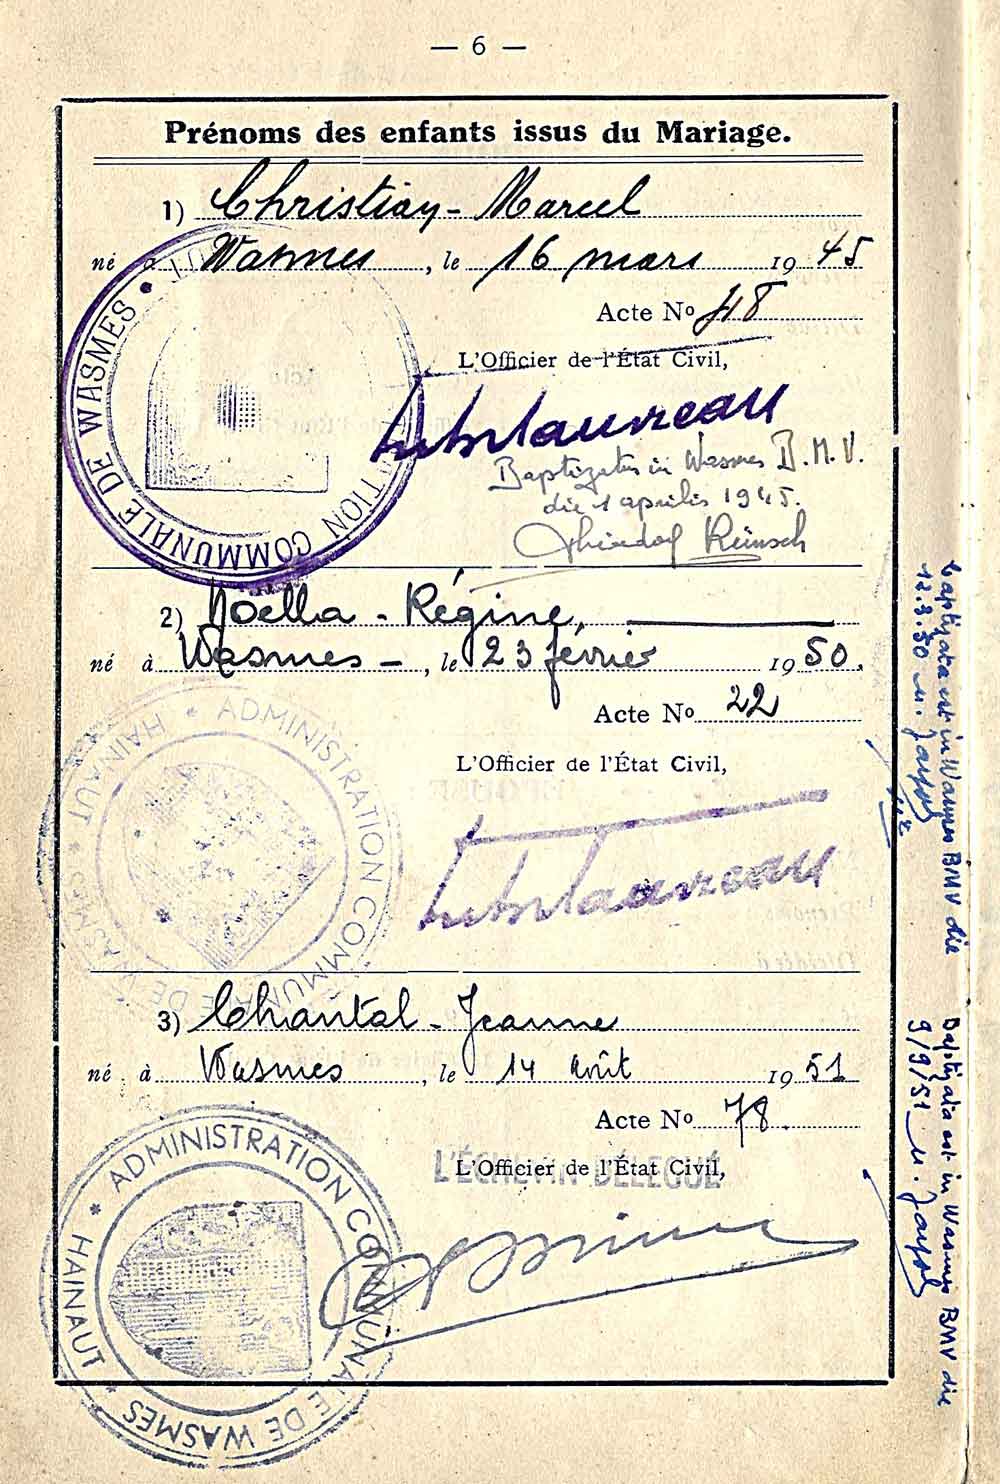 — 6 —
Prénoms des enfants issus du Mariage.
1) Christian - Marcel
né à Wasmes, le 16 mars 1945
Acte No 48
L'Officier de l'État Civil,
Baptizatus in Wasmes B.M.V.
die 1 aprilis 1945.
2) Noella - Régine,
né à Wasmes -, le 23 février 1950.
Acte No 22
L'Officier de l'État Civil,
3) Chantal - Jeanne
né à Wasmes, le 14 Août 1951
Acte No 78.
L'ÉCHEVIN DÉLÉGUÉ
L'Officier de l'État Civil,
COMMUNALE DE WASMES
HAINAUT * ADMINISTRATION COMMUNALE DE WASMES *
HAINAUT * ADMINISTRATION COMMUNALE DE WASMES *
baptizata est in Wasmes BMV die
12.3.50
Baptizata est in Wasmes BMV die
9/9/51